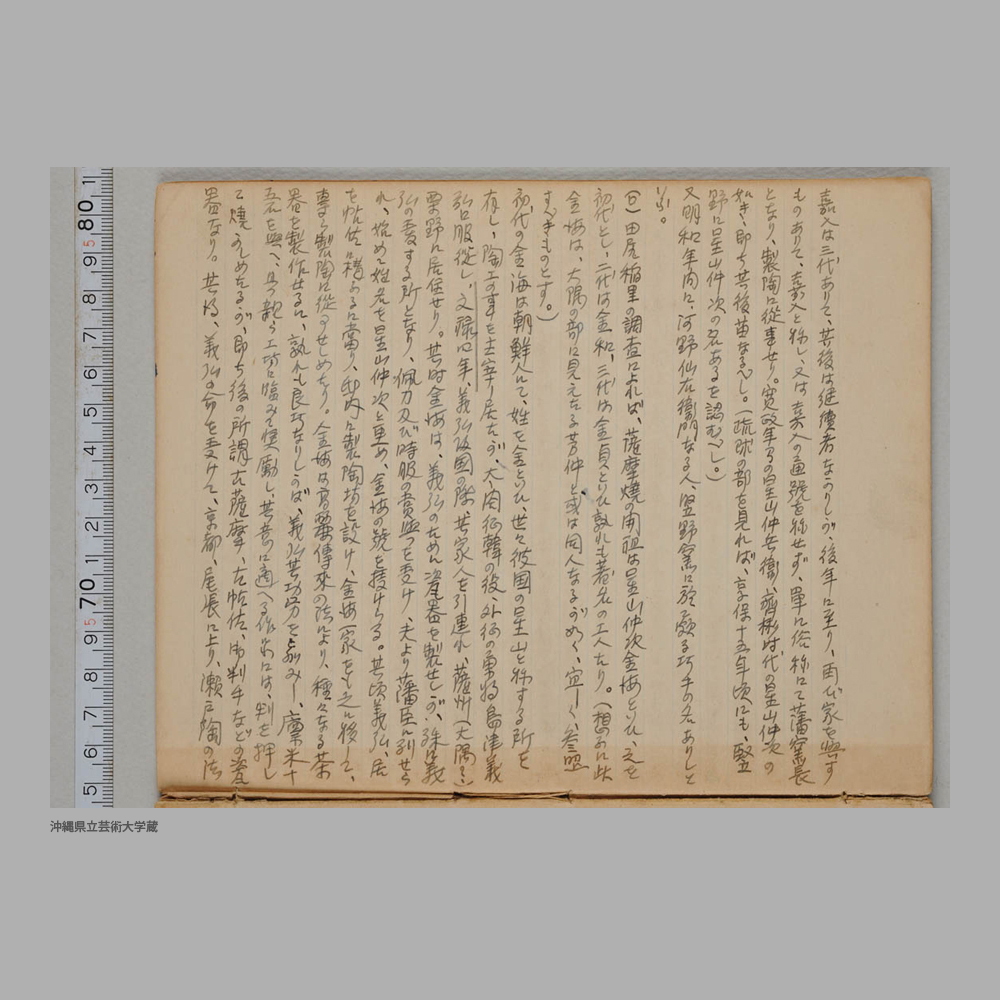 嘉入は三代ありて、其後は継続者なかりしが、後年に至り、再び家を興す
ものありて、嘉入と称し、又は嘉入の通號を称せず、単に俗称にて藩窯長
となり、製陶に従事せり。寛政年間の星山仲兵衛、齊彬時代の星山仲次の
如き、即ち其後苗なるべし。（琉球の部を見れば、享保十五年頃にも、竪
野に星山仲次の名あるを認むべし。）
又明和年間に、河野仙右衛門なる人、竪野窯に於て頗る巧手の名ありしと
いふ。
田尻稲里の調査によれば、薩摩焼の開祖は星山仲次金海といひ、之を
初代とし、二代は金和、三代は金貞といひ孰れも著名の工人たり。（想ふに此
金海は、大隅の部に見えたる芳仲と或は同人なるが如く、宜しく参照
すべきものとす。）
初代の金海は朝鮮人にて、姓を金といひ、世々彼国の星山と称する所を
有し、陶工の事を主宰し居たが、太閤征韓の役、外征の勇将島津義
弘に服従し、文禄四年、義弘皈國の際、其家人を引連れ、薩州（大隅）
栗野に居住せり。其時金海は、義弘のために瓷器を製せしが、殊に義
弘の愛する所となり、佩刀及び時服の賞與を受け、夫より藩臣に列せら
れ、始めて姓名を星山仲次と更め、金海の號を授けらる。其頃義弘、居
を帖佐に構ふるに當り、邸内に製陶場を設け、金海一家をも之に移して、
専ら製陶に従事せしめたり。金海は高麗傳来の法により、種々なる茶
器を製作せるに、孰れも良巧なりしかば、義弘其功労を嘉みし、廩米十
五石を與へ、且つ親ら工場に臨みて奨励し、其意に適へる作品には、判を押し
て焼かしめたるが、即ち後の所謂古薩摩、古帖佐、御判手などの瓷
器なり。其後、義弘の命を受けて、京都、尾張に上り、瀬戸陶の法
沖縄県立芸術大学蔵